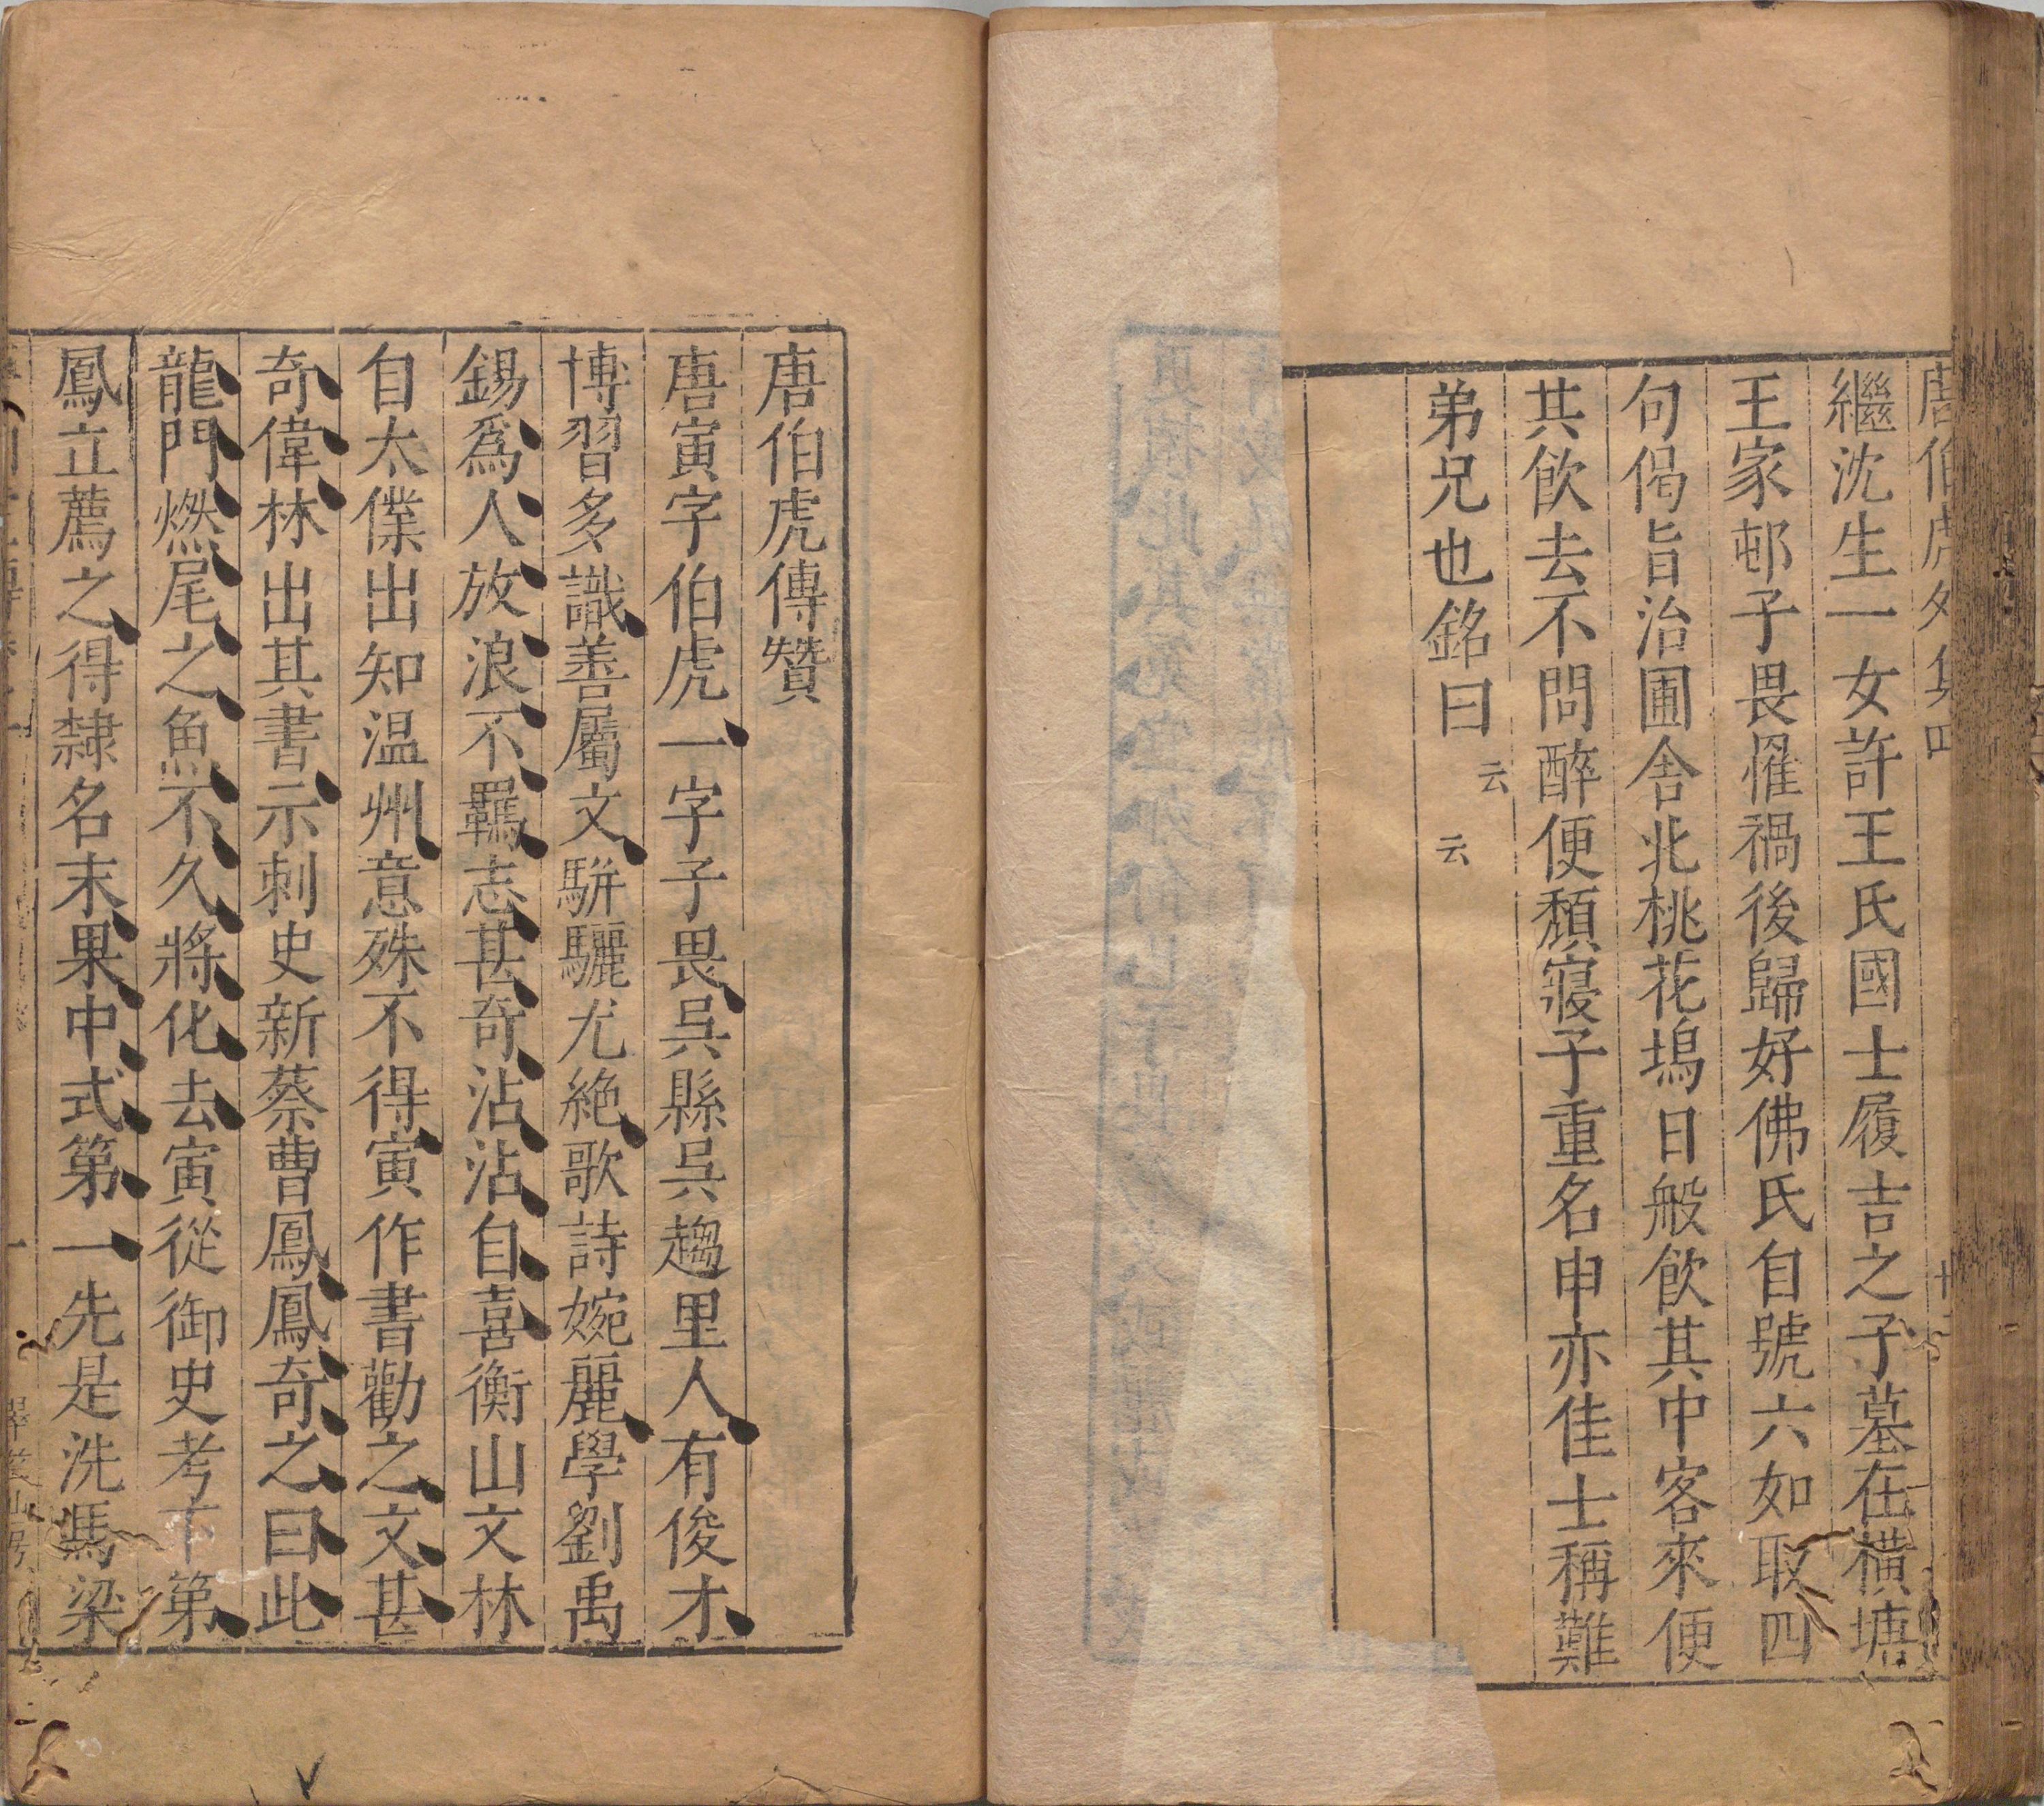 唐伯虎外集四
繼沈生一女許王氏國士履吉之子墓在橫塘
王家邨子畏罹禍後歸好佛氏自號六如取四
句偈旨治圃舍北桃花塢日般飲其中客來便
其飲去不問醉便頹寢子重名申亦佳士稱難
弟兄也銘曰云云
唐伯虎傳贊
唐寅字伯虎一字子畏吳縣吳趨里人有俊才
博習多識善屬文駢驪尤絕歌詩婉麗學劉禹
錫爲人放浪不羈志甚奇沾沾自喜衡山文林
自太僕出知温州意殊不得寅作書勸之文甚
奇偉林出其書示刺史新蔡曹鳳鳳奇之曰此
龍門燃尾之魚不久將化去寅從御史考下第
鳳立薦之得隸名末果中式第一先是洗馬梁